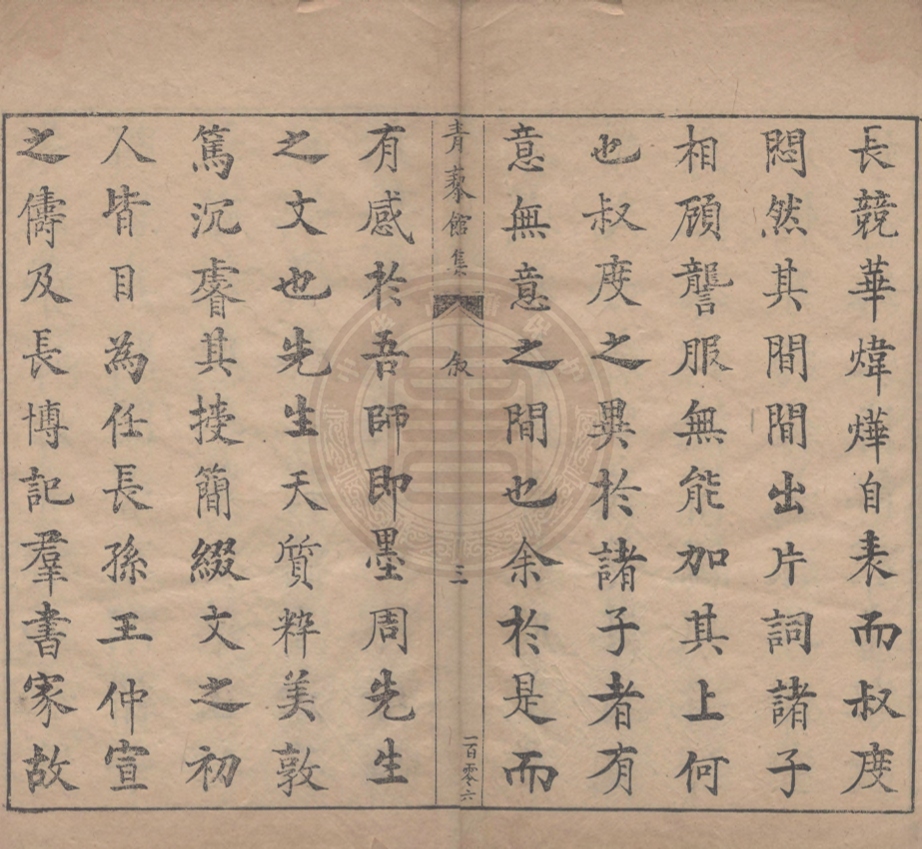 長競華煒燁自表而叔度
悶然其間間出片詞諸子
相顧讋服無能加其上何
也叔度之異於諸子者有
意無意之間也余於是而
青藜館集 叙 三 一百零六
有感於吾師即墨周先生
之文也先生天質粹美敦
篤沉睿其授簡綴文之初
人皆目為任長孫王仲宣
之儔及長博記羣書家故